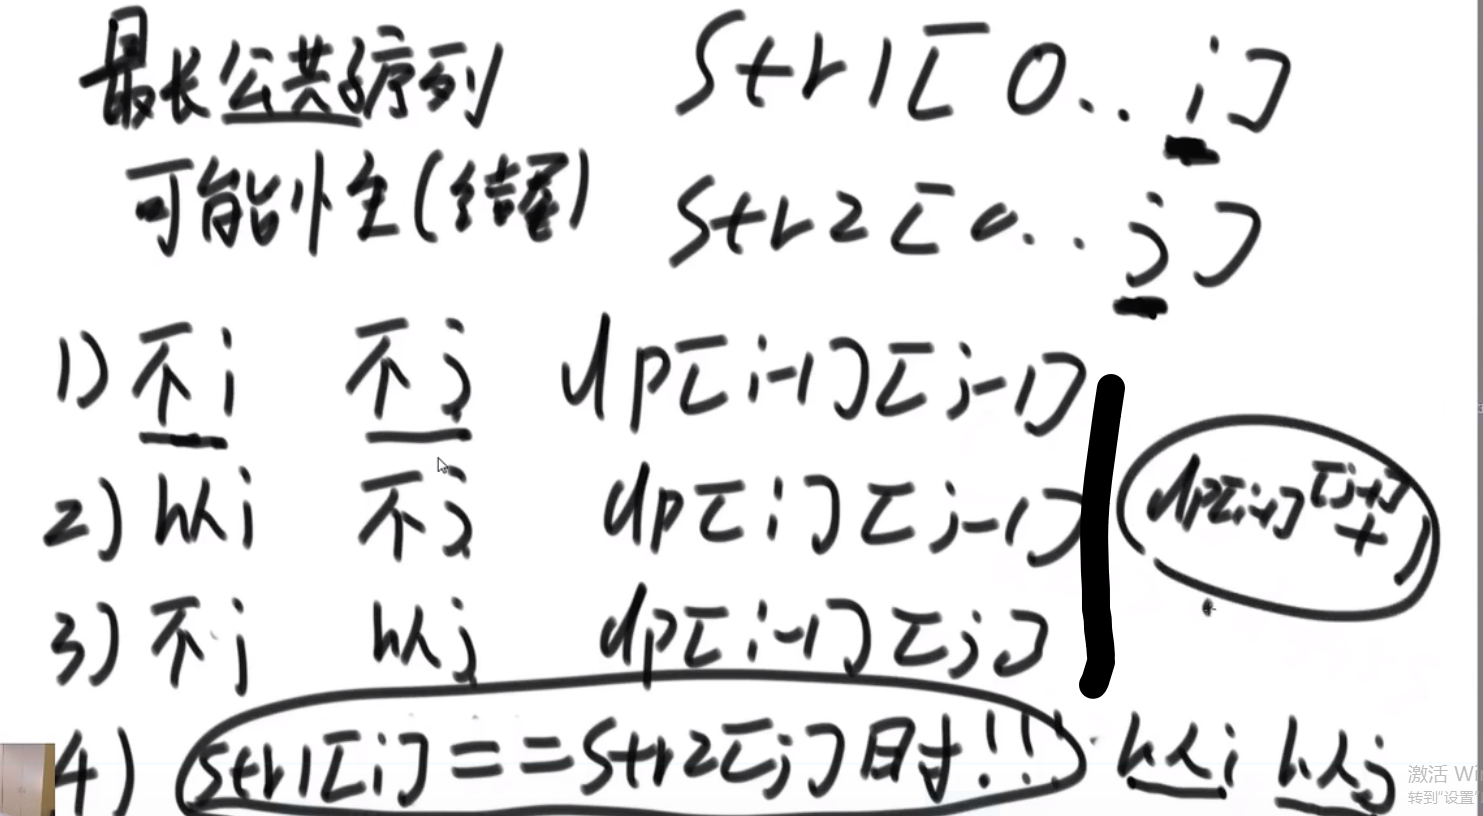 最长公共子序列 str1[0..i]
可能性(结尾) str2[0..j]
1) 不i 不j dp[i-1][j-1]
2) 以i 不j dp[i][j-1]
dp[i-1][j-1]+1
3) 不i 以j dp[i-1][j]
4) str1[i]==str2[j]时!!! 以i 以j
激活 Wi
转到"设置"